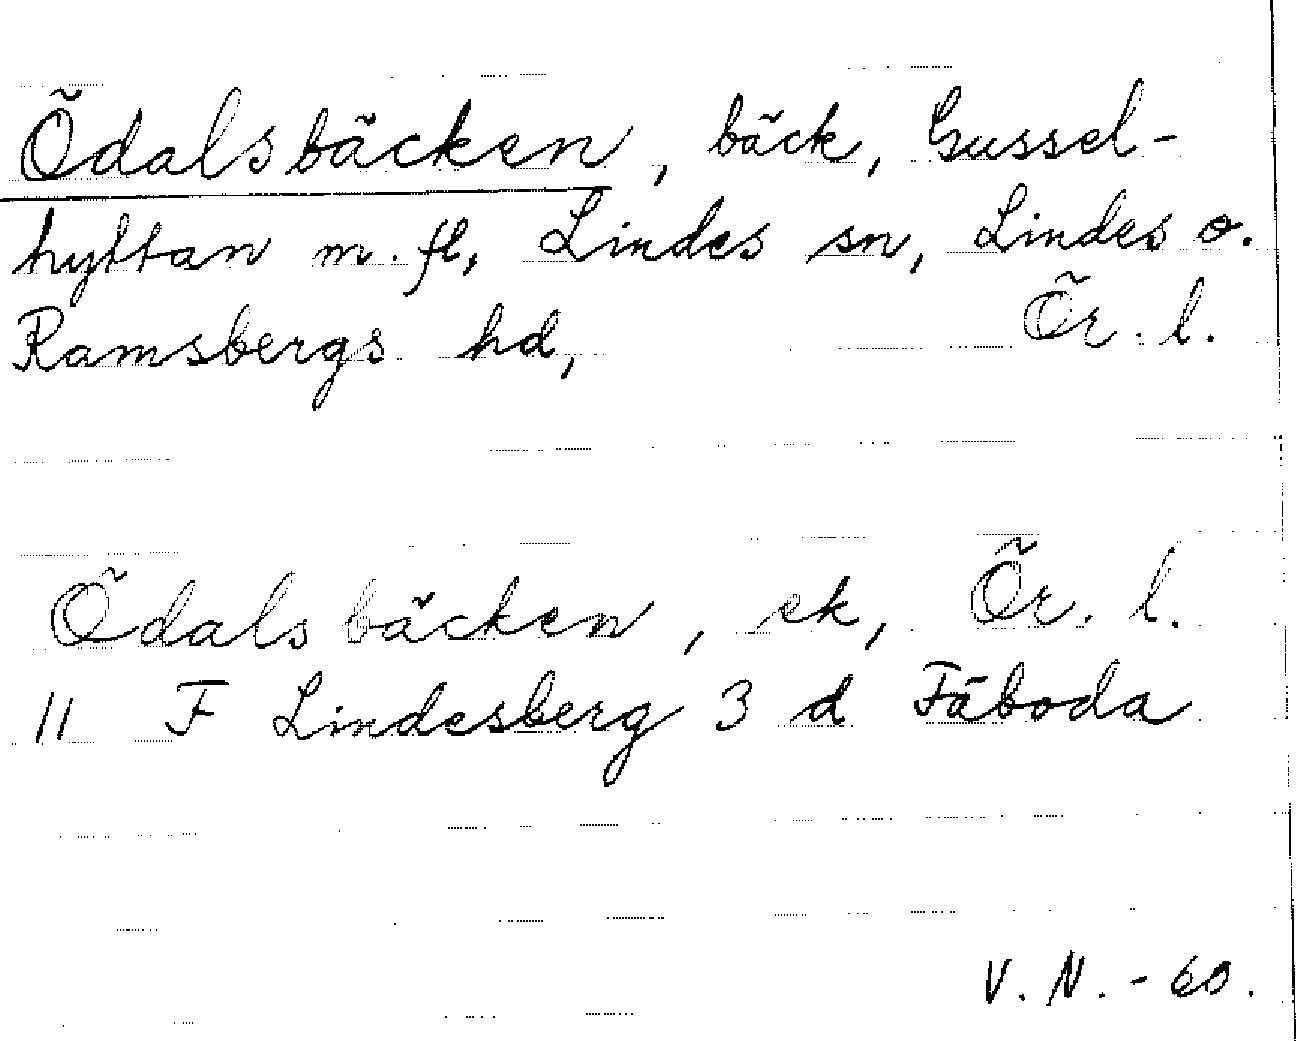 Ödalsbäcken, bäck, Gussel-
hyttan m. fl, Lindes sn, Lindes o.
Ramsbergs hd, Ör. l.
Ödalsbäcken, ek, Ör. l.
11 F Lindesberg 3 d Fäboda
V. N. - 60.